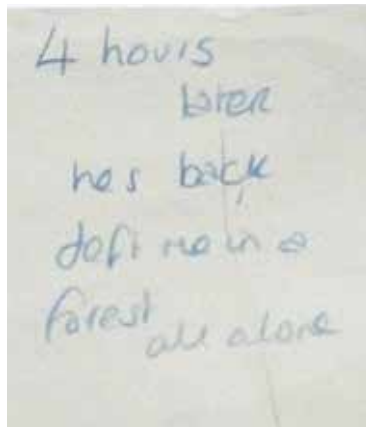 4 hours
later
hes back
left me in a
forest
all alone